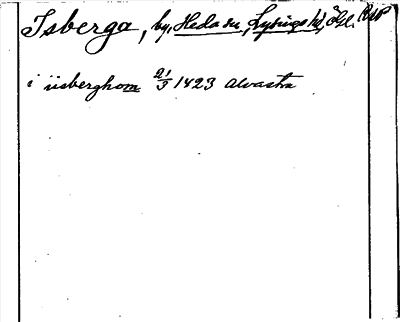 Isberga, by, Heda sn, Lysings hd, Ögl.
i iisberghom 21/9 1423 Alvastra